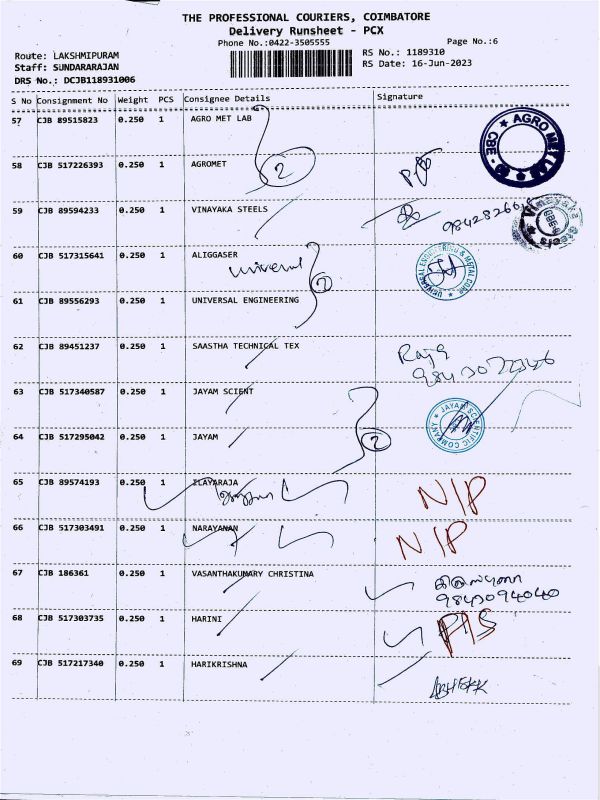 THE PROFESSIONAL COURIERS, COIMBATORE
Delivery Runsheet - PCX
Phone No.:0422-3505555
Page No.:6
Route: LAKSHMIPURAM
RS No.: 1189310
Staff: SUNDARARAJAN
RS Date: 16-Jun-2023
DRS No.: DCJB118931006
S No Consignment No Weight PCS Consignee Details Signature
57 CJB 89515823 0.250 1 AGRO MET LAB
AGRO METAL
CBE
58 CJB 517226393 0.250 1 AGROMET
2
59 CJB 89594233 0.250 1 VINAYAKA STEELS
Vinayaka Steels
CBE
60 CJB 517315641 0.250 1 ALIGGASER
universal
2
UNIVERSAL ENGINEERING & METAL CORP
61 CJB 89556293 0.250 1 UNIVERSAL ENGINEERING
62 CJB 89451237 0.250 1 SAASTHA TECHNICAL TEX
63 CJB 517340587 0.250 1 JAYAM SCIENT
JAYAM SCIENTIFIC COMPANY
64 CJB 517295042 0.250 1 JAYAM
2
65 CJB 89574193 0.250 1 ILAYARAJA
N/P
66 CJB 517303491 0.250 1 NARAYANAN
N/P
67 CJB 186361 0.250 1 VASANTHAKUMARY CHRISTINA
9843094040
68 CJB 517303735 0.250 1 HARINI
69 CJB 517217340 0.250 1 HARIKRISHNA